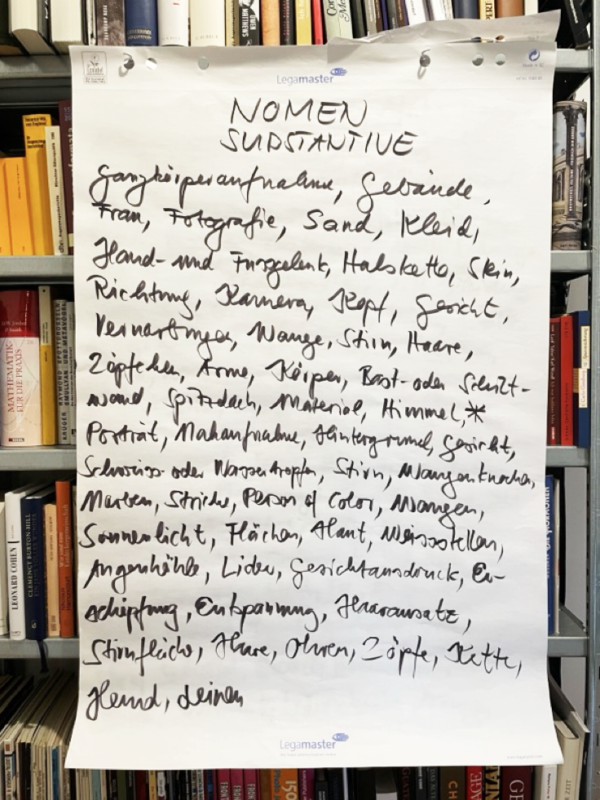 Legamaster
NOMEN
SUBSTANTIVE
Ganzkörperaufnahme, Gebäude,
Frau, Fotografie, Sand, Kleid,
Hand- und Fussgelenk, Halskette, Skin,
Richtung, Kamera, Kopf, Gesicht,
Vernarbungen, Wange, Stirn, Haare,
Zöpfchen, Arme, Körper, Bast- oder Schilf-
wand, Spitzdach, Material, Himmel,*
Porträt, Nahaufnahme, Hintergrund, Gesicht,
Schweiss- oder Wassertropfen, Stirn, Wangenknochen,
Narben, Striche, Person of Color, Wangen,
Sonnenlicht, Flächen, Haut, Weissstellen,
Augenhöhle, Lider, Gesichtsausdruck, Er-
schöpfung, Entspannung, Haaransatz,
Stirnfläche, Haare, Ohren, Zöpfe, Kette,
Hemd, Leinen
Legamaster
MATHEMATIK
FÜR DIE PRAXIS
LEONARD COHEN